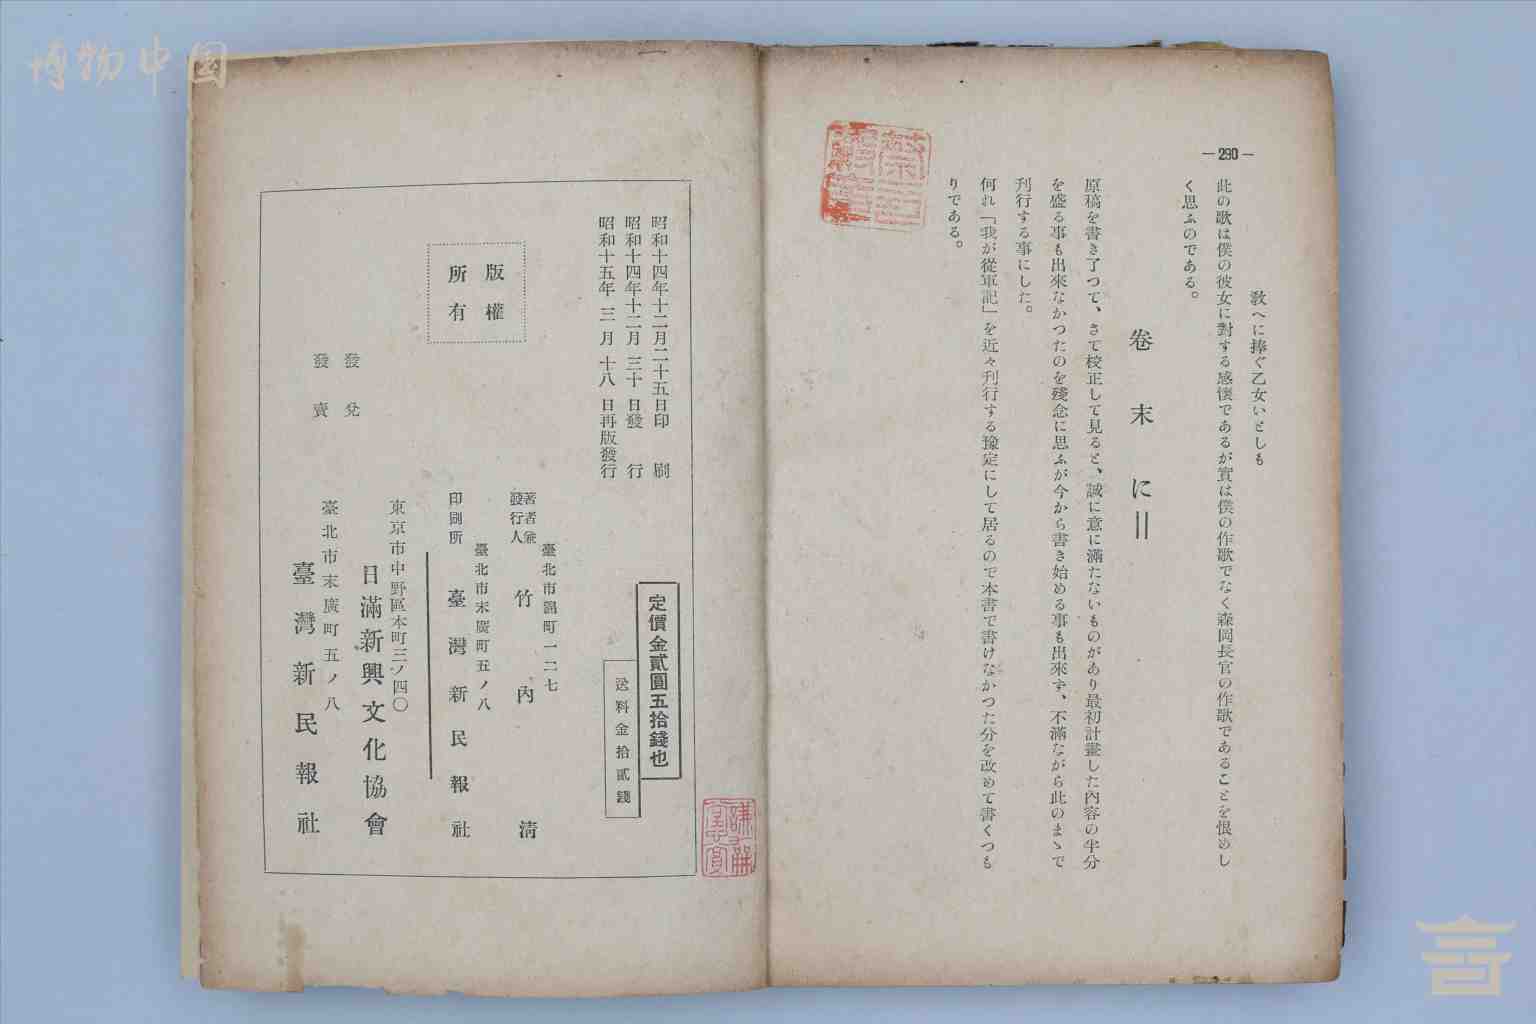 博物中国
— 290 —
教へに捧ぐ乙女いとしも
此の歌は僕の彼女に對する感懷であるが實は僕の作歌でなく森岡長官の作歌であることを恨めし
く思ふのである。
卷末に＝
原稿を書き了つて、さて校正して見ると、誠に意に滿たないものがあり最初計畫した內容の半分
を盛る事も出來なかつたのを殘念に思ふが今から書き始める事も出來ず、不滿ながら此のまゝで
刊行する事にした。
何れ「我が從軍記」を近々刊行する豫定にして居るので本書で書けなかつた分を改めて書くつも
りである。
定價金貳圓五拾錢也
送料金拾貳錢
昭和十四年十二月二十五日印刷
昭和十四年十二月三十日發行
昭和十五年三月十八日再版發行
版權
所有
臺北市錦町一二七
著者兼
發行人
竹內清
臺北市末廣町五ノ八
印刷所
臺灣新民報社
東京市中野區本町三ノ四〇
發兌
日滿新興文化協會
臺北市末廣町五ノ八
發賣
臺灣新民報社